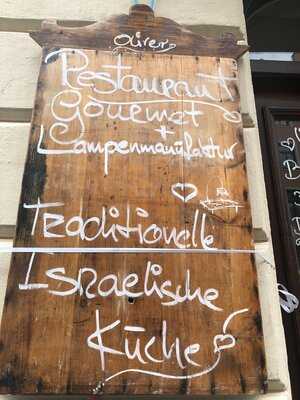 Oliver
Restaurant
Gourmet
+
Lampenmanufaktur
Traditionelle
Israelische
Küche